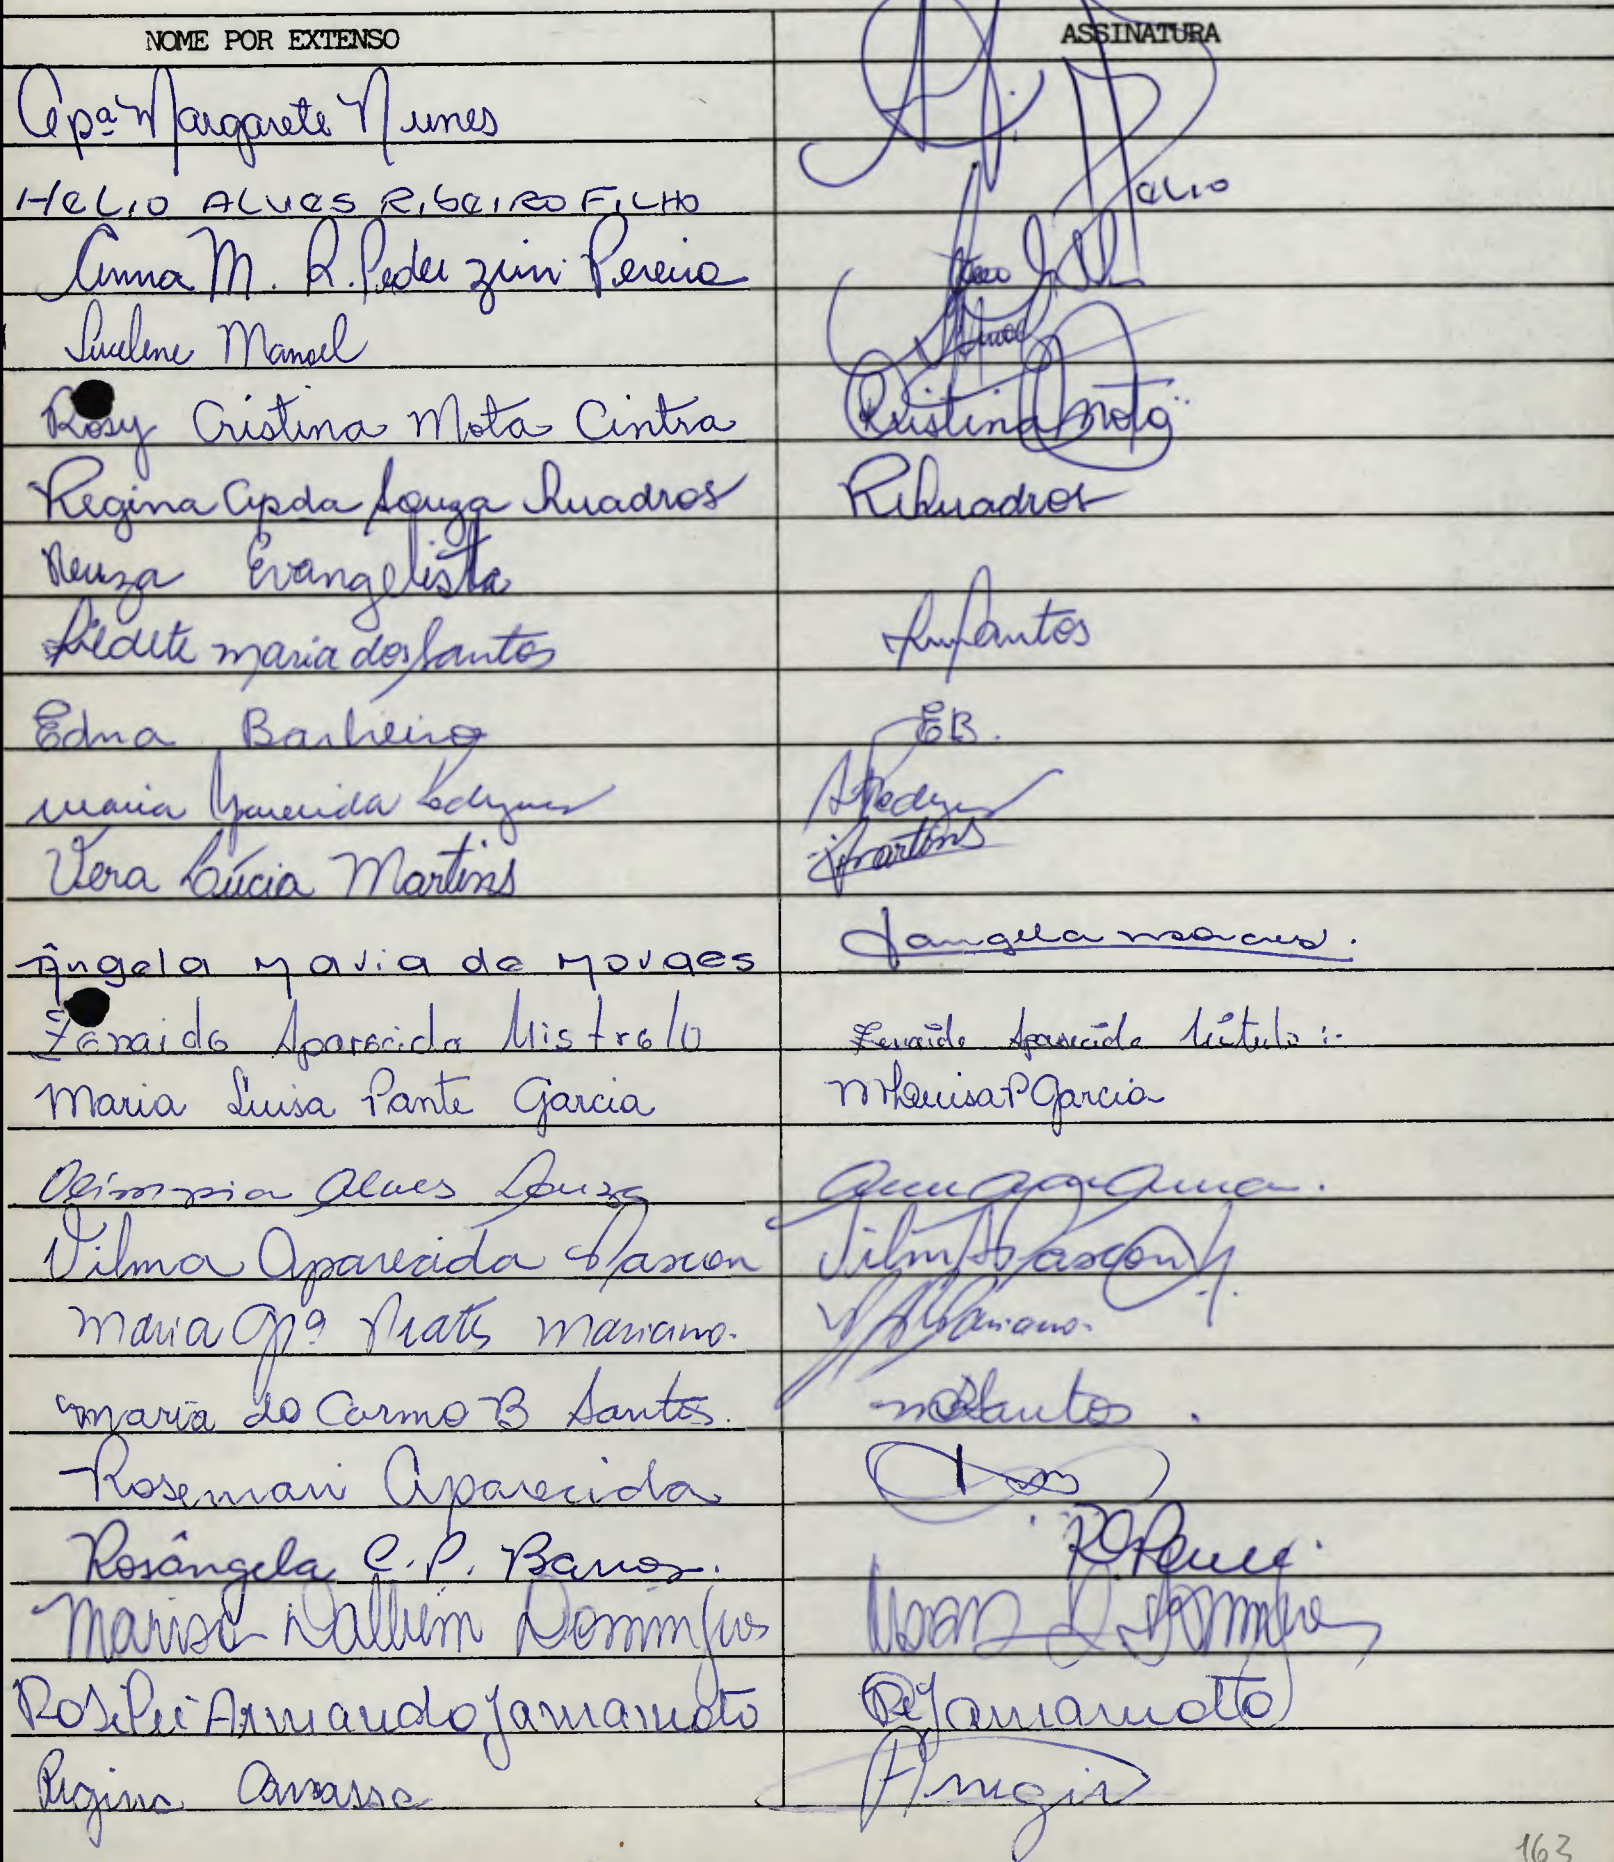 NOME POR EXTENSO ASSINATURA
Apª Margarete Nunes
HELIO ALVES RIBEIRO FILHO Helio
Anna M. R. Pederzini Pereira
Lucilene Manoel
Rosy Cristina Mota Cintra Cristina Mota
Regina Apda Souza Quadros Quadros
Neuza Evangelista
maria dos Santos Santos
Edna Barbeiro EB.
maria Aparecida Rodrigues
Vera Lúcia Martins Martins
Ângela Maria de Moraes angela moraes.
Zenaide Aparecida Mistrelo Zenaide Aparecida
Maria Luisa Pante Garcia M Luisa P Garcia
Olimpia Alves Souza
Vilma Aparecida Pascon Vilm A Pascon
Maria Apª Prates Mariano. Mariano.
Maria do Carmo B Santos. Santos.
Rosemari Aparecida
Rosângela C. P. Barros.
Marisa Dallum Domingues
Armando Yamamoto Yamamoto
Regina
163